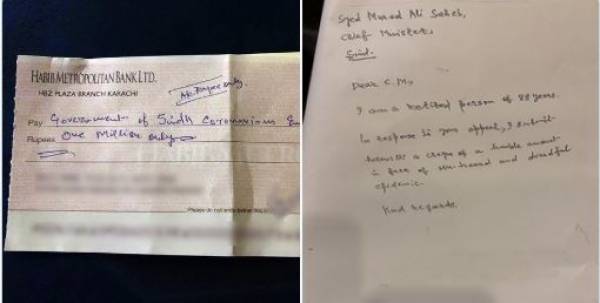 HABIB METROPOLITAN BANK LTD.
HBZ PLAZA BRANCH KARACHI
A/c Payee only
Pay Government of Sindh Coronavirus
Rupees One Million only
Please do not write below this
Syed Murad Ali Saheb,
Chief Minister,
Sind.
Dear C.M,
I am a retired person of 88 years.
In response to your appeal, I submit
herewith a cheque of a humble amount
in face of and dreadful
epidemic.
Kind Regards